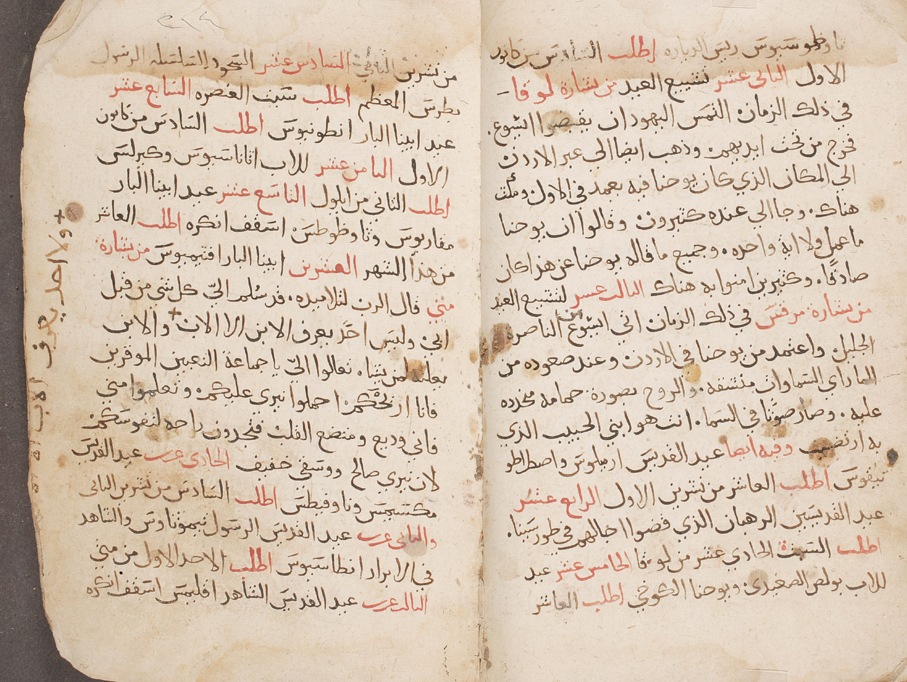 وطوسبوس ريس الدياره اطلب السادس من كانون
الاول الثاني عشر تشييع العيد من بشارة لوقا
في ذلك الزمان التمس اليهود ان يقبضوا ايشوع
فخرج من تحت ايديهم وذهب ايضا الى عبر الاردن
الى المكان الذي كان يوحنا فيه يعمد في الاول ومكث
هناك وجا الى عنده كثيرون وقالوا ان يوحنا
ما عمل ولا اية واحده وجميع ما قاله يوحنا عن هذا كان
صادقا وكثيرين امنوا به هناك الثالث عشر لتشييع العيد
من بشارة مرقس في ذلك الزمان اتى ايشوع من الناصرة
الجليل واعتمد من يوحنا في الاردن وعند صعوده من
الما راى السماوات منشقه والروح بصورة حمامه منحدره
عليه وصار صوتا في السما انت هو ابني الحبيب الذي
به ارتضيت وفيه ايضا عيد القديس ارميلوس واصطراطو
نيقوس اطلب العاشر من تشرين الاول الرابع عشر
عيد القديسين الرهبان الذي قضوا اجالهم في طور سينا
اطلب السبت الحادي عشر من لوقا الخامس عشر عيد
للاب بولص الصعيدي ويوحنا الكوخي اطلب العاشر
من تشرين الثاني السادس عشر السجود لسلسلة الرسول
بطرس المعظم اطلب سبت العنصره السابع عشر
عيد ابينا البار انطونيوس اطلب السادس من كانون
الاول الثامن عشر للاب اثاناسيوس وكيرلس
اطلب الثاني من ايلول التاسع عشر عيد ابينا البار
مقاريوس وثاوظوطس اسقف انكره اطلب العاشر
من هذا الشهر العشرين ابينا البار افتيميوس من بشارة
متي قال الرب لتلاميذه قد سلم الي كل شي من قبل
ابي وليس احد يعرف الابن الا الاب والابن
يعلنه لمن يشاء تعالوا الي يا جماعة التعبين الموقرين
فانا اريحكم احملوا نيري عليكم وتعلموا مني
فاني وديع ومتضع القلب فتجدون راحه لنفوسكم
لان نيري صالح ووسقي خفيف الحادي عشر عيد القديس
مكسيمس وناوفيطس اطلب السادس من تشرين الثاني
والثاني عشر عيد القديس الرسول تيموثاوس والشاهد
في الابرار انسطاسيوس اطلب الاحد الاول من متي
الثالث عشر عيد القديس الشاهد اقليمس اسقف انكره
+ ولا احد يعرف الاب الا